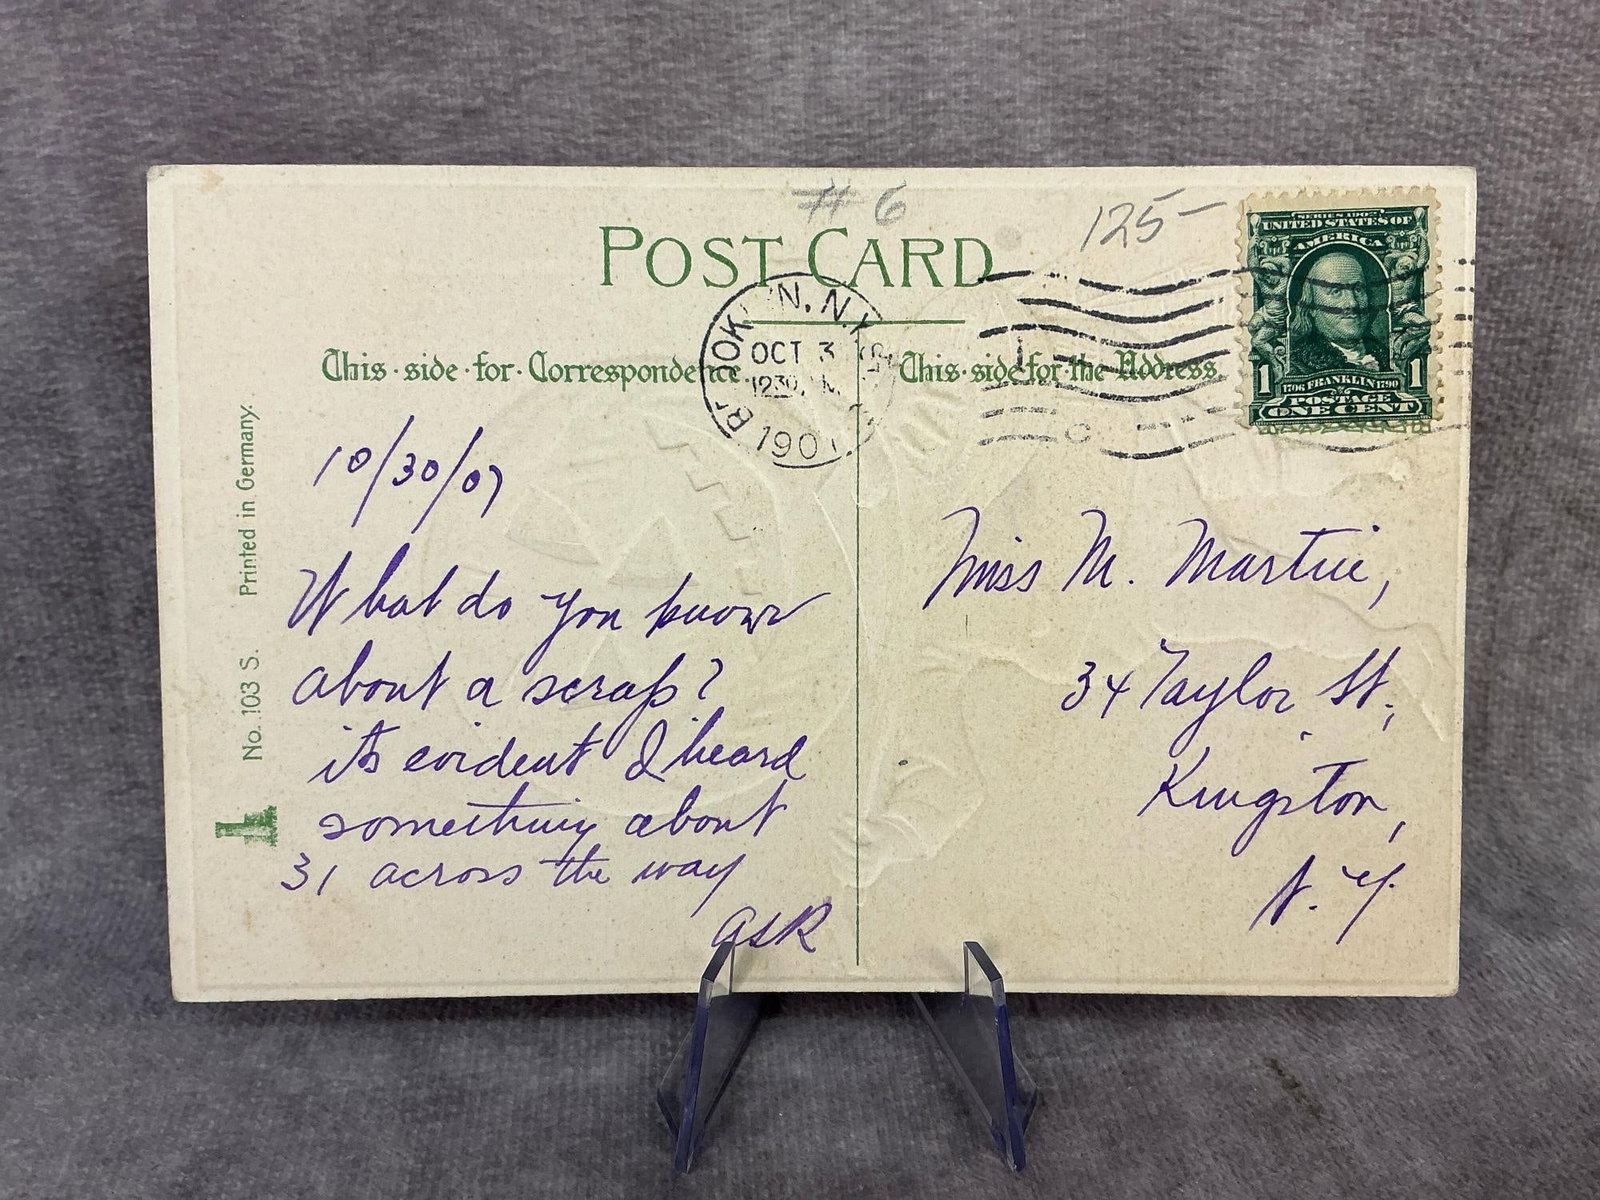 # 6
125-
POST CARD
BROOKLYN, N.Y.
OCT 3
1230
190
SERIES 1902
UNITED STATES OF
AMERICA
1 1
1706 FRANKLIN 1790
POSTAGE
ONE CENT
This·side·for·Correspondence.
This·side for·the·Address
10/30/07
What do you know
about a scrap?
its evident I heard
something about
31 across the way
Miss M. Martin,
34 Taylor St.,
Kingston,
N. Y.
No. 103 S. Printed in Germany.